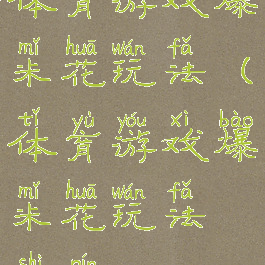 体育游戏爆
mǐ huā wán fǎ
米花玩法（
tǐ yù yóu xì bào
体育游戏爆
mǐ huā wán fǎ
米花玩法
shì pín